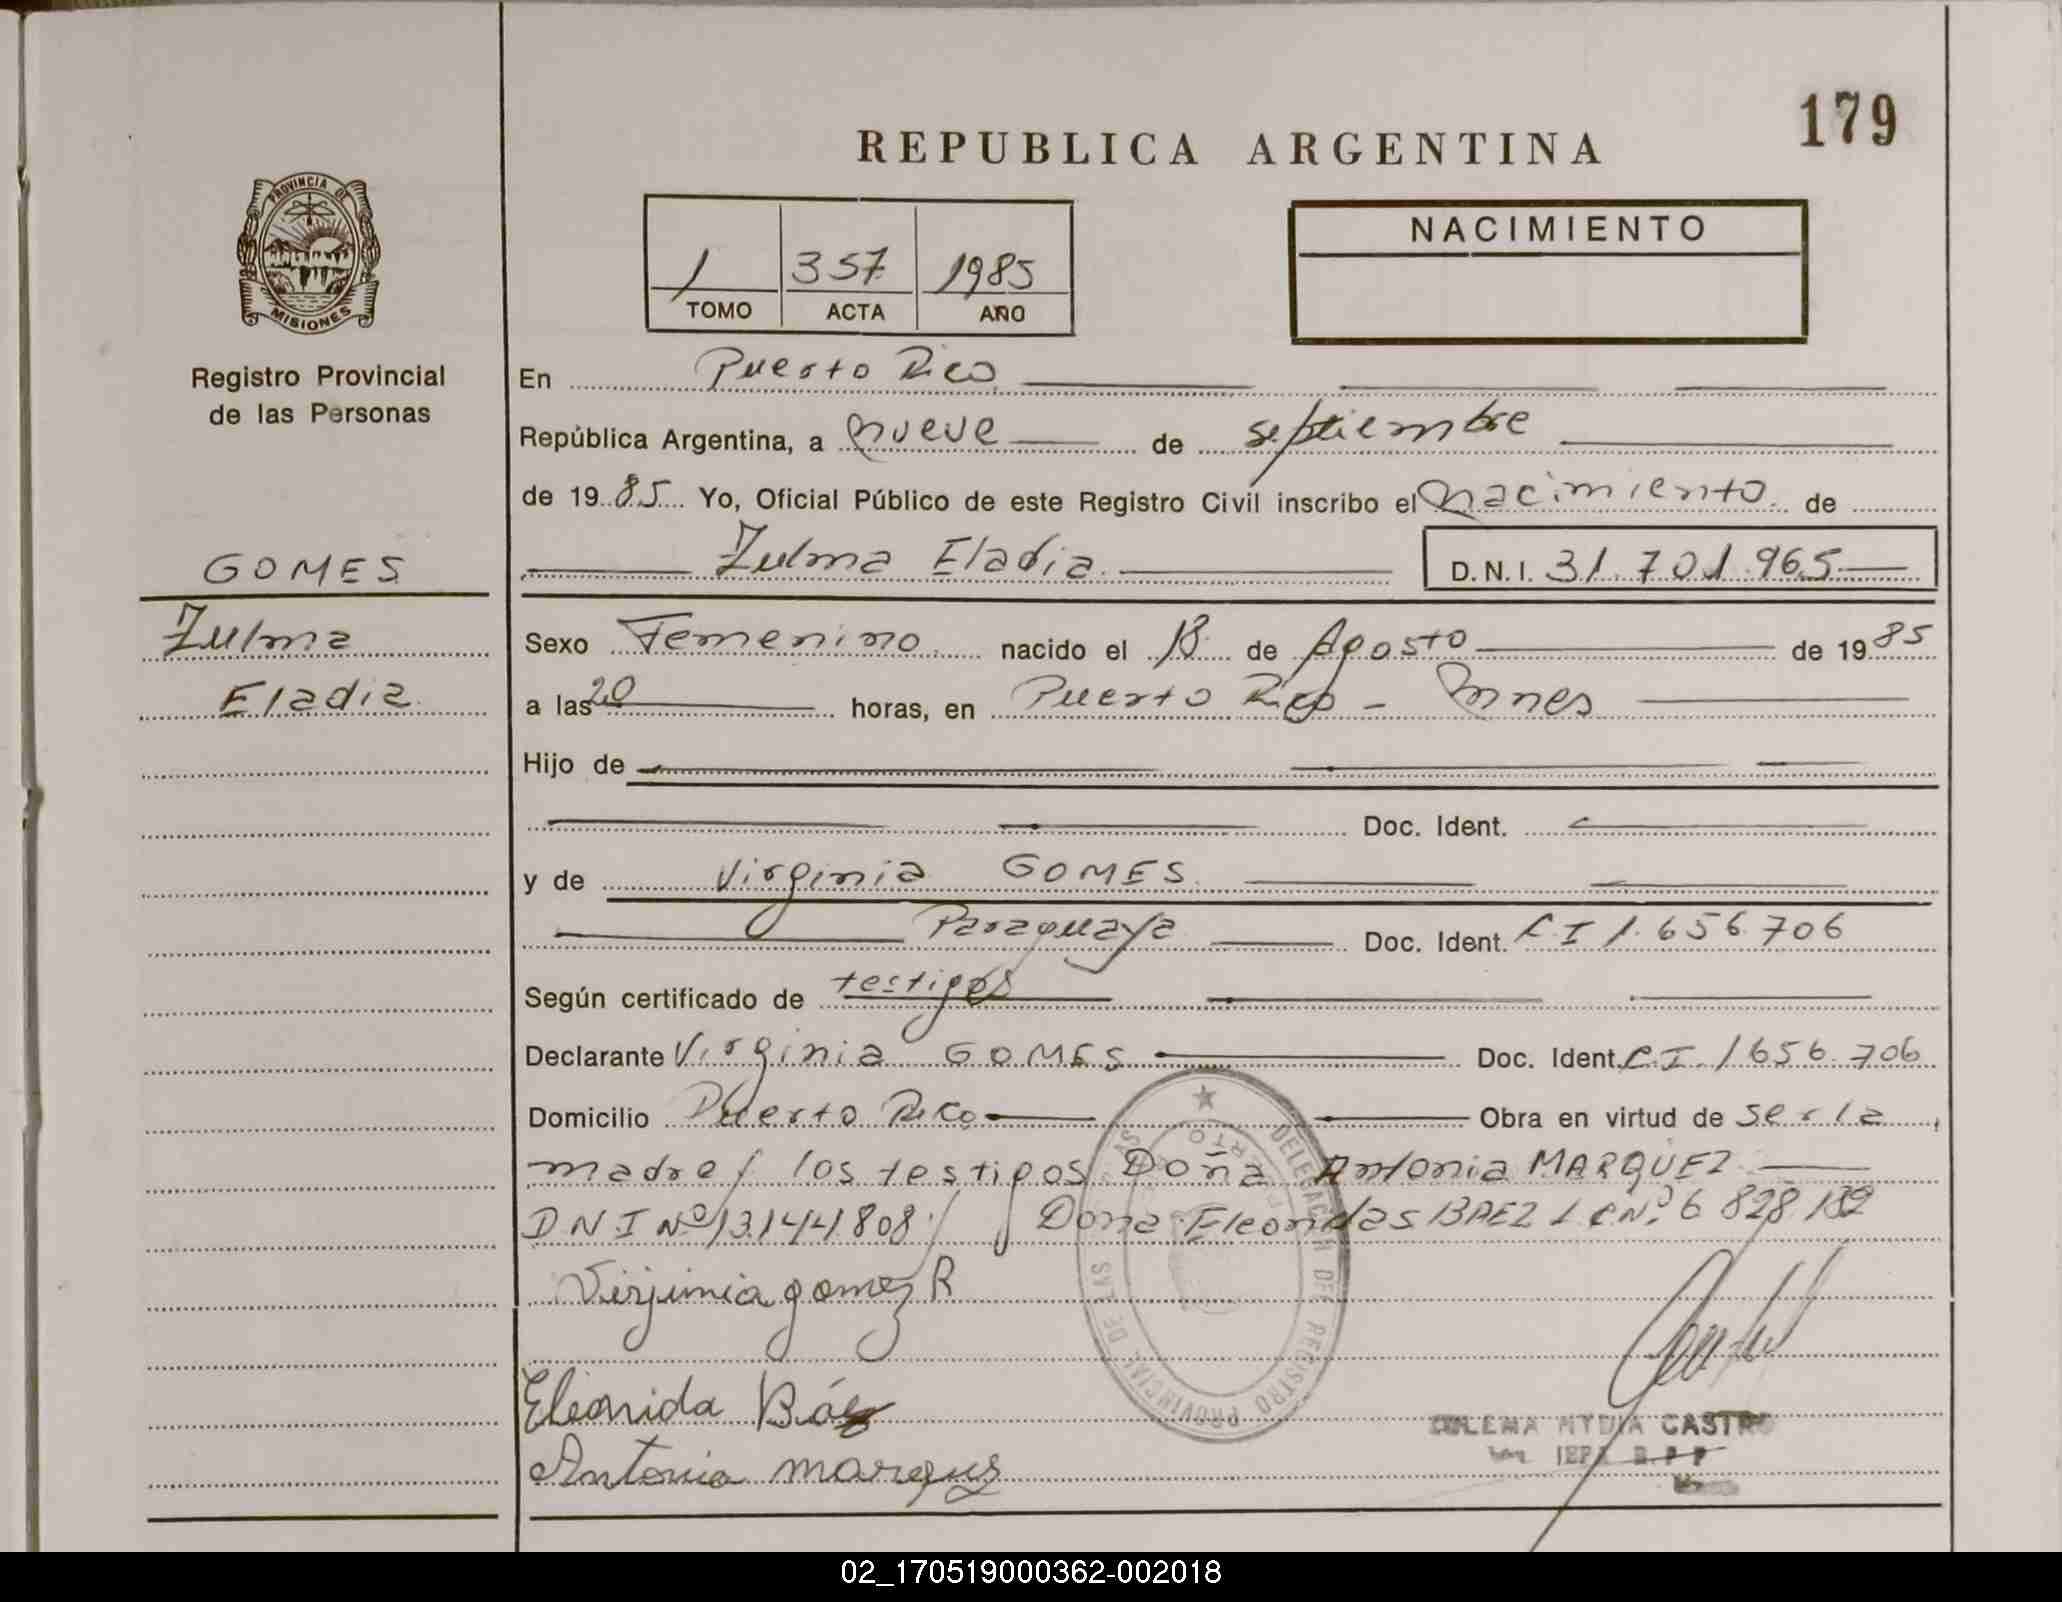 179
REPUBLICA ARGENTINA
PROVINCIA DE
MISIONES
Registro Provincial
de las Personas
1 357 1985
TOMO ACTA AÑO
NACIMIENTO
En Puerto Rico
República Argentina, a nueve de septiembre
de 1985 Yo, Oficial Público de este Registro Civil inscribo el nacimiento de
Zulma Eladia D.N.I. 31.701.965
GOMES
Zulma
Eladia
Sexo Femenino nacido el 18 de Agosto de 1985
a las 20 horas, en Puerto Rico - Mnes
Hijo de
Doc. Ident.
y de Virginia GOMES
Paraguaya Doc. Ident. C I 1.656.706
Según certificado de testigos
Declarante Virginia GOMES Doc. Ident. C.I. 1.656.706
Domicilio Puerto Rico Obra en virtud de ser la
madre y los testigos Doña Antonia MARQUEZ
DNI Nº 13.144.808 y Doña Eleonidas BAEZ L C Nº 6 828 132
Virjinia gomez R
Eleonida Báez
Antonia marques
DELEGACION DEL REGISTRO PROVINCIAL DE LAS
NYDIA CASTRO
02_170519000362-002018